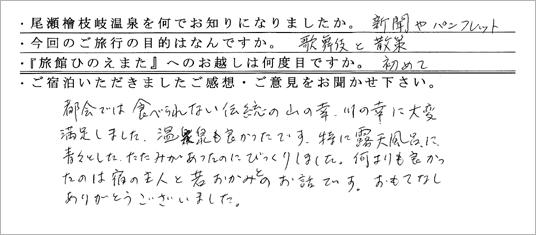 ・尾瀬檜枝岐温泉を何でお知りになりましたか。 新聞やパンフレット
・今回のご旅行の目的はなんですか。 歌舞伎と散策
・『旅館ひのえまた』へのお越しは何度目ですか。 初めて
・ご宿泊いただきましたご感想・ご意見をお聞かせ下さい。
都会では食べられない伝統の山の幸、川の幸に大変
満足しました。温泉も良かったです。特に露天風呂に
青々とした、たたみがあったのにびっくりしました。何よりも良かっ
たのは宿の主人と若おかみとのお話です。おもてなし
ありがとうございました。